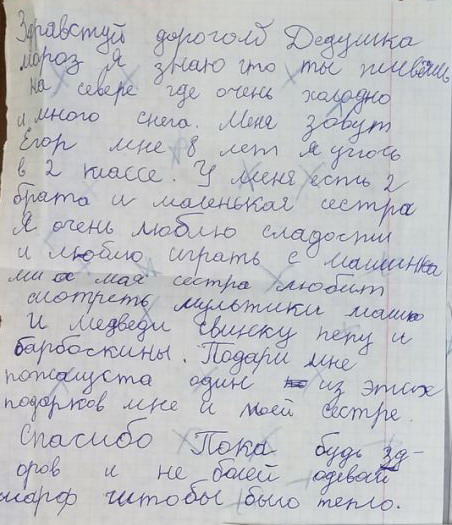 Здравствуй дорогой Дедушка
мороз Я знаю что ты живёшь
на севере где очень холодно
и много снега. Меня зовут
Егор мне 8 лет я учюсь
в 2 классе. У меня есть 2
брата и маленькая сестра
Я очень люблю сладости
и люблю играть с машинка
ми а моя сестра любит
смотреть мультики маша
и медведи свинку пепу и
барбоскины. Подари мне
пожалуста один из этих
подарков мне и моей сестре.
Спасибо Пока будь зд-
оров и не болей одевай
шарф чштобы было тепло.